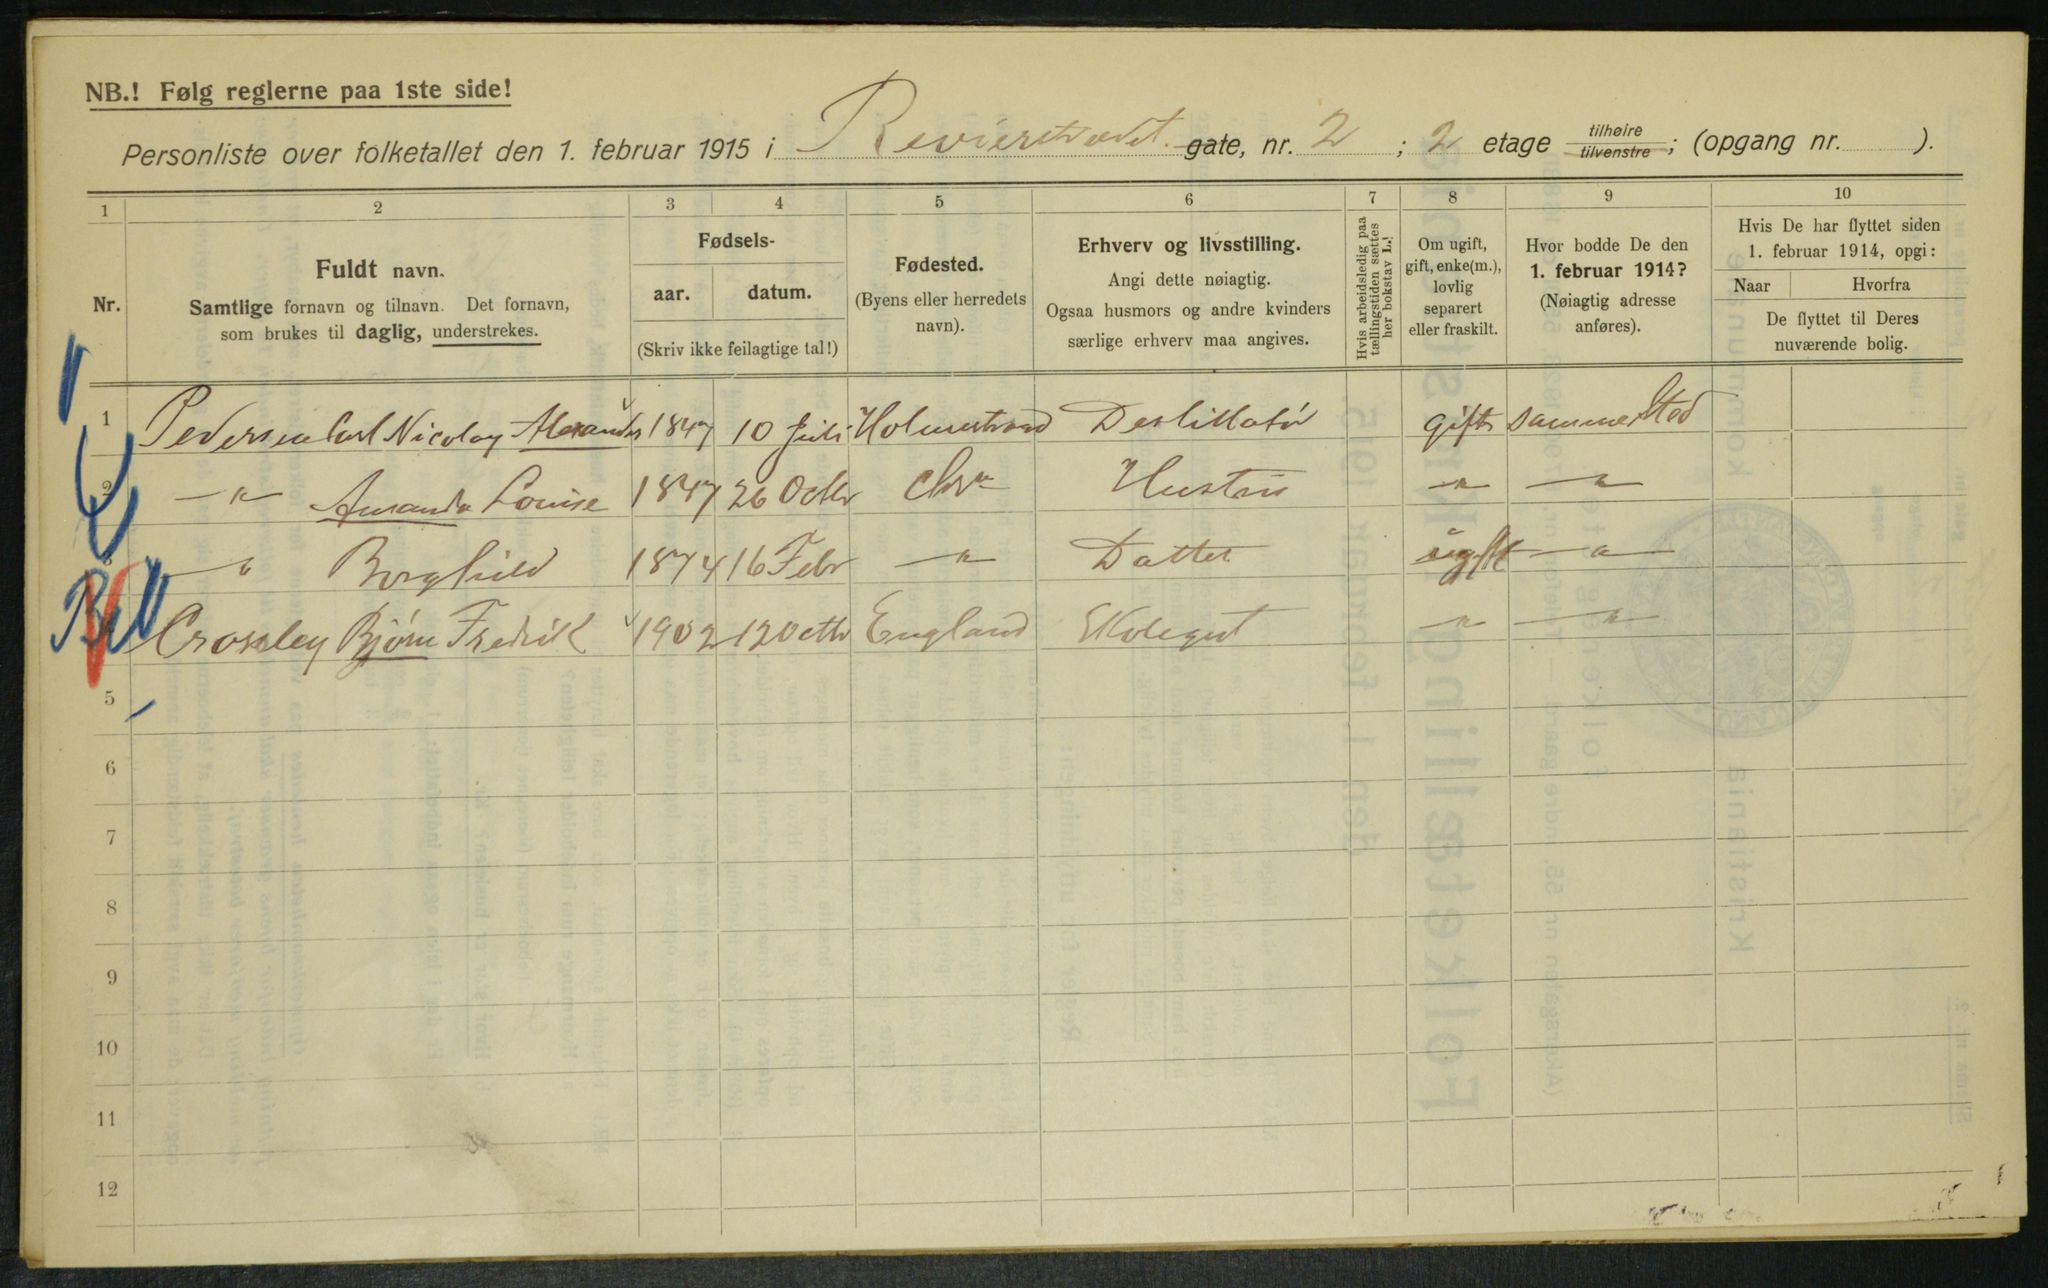 NB.! Følg reglerne paa 1ste side!
Personliste over folketallet den 1. februar 1915 i Revierstrædet gate, nr. 2 ; 2 etage tilhøire / tilvenstre ; (opgang nr. ).
1 2 3 4 5 6 7 8 9 10
Nr.
Fuldt navn.
Samtlige fornavn og tilnavn. Det fornavn,
som brukes til daglig, understrekes.
Fødsels-
aar. datum.
(Skriv ikke feilagtige tal!)
Fødested.
(Byens eller herredets
navn).
Erhverv og livsstilling.
Angi dette nøiagtig.
Ogsaa husmors og andre kvinders
særlige erhverv maa angives.
Hvis arbeidsledig paa
tællingstiden sættes
her bokstav L.!
Om ugift,
gift, enke(m.),
lovlig
separert
eller fraskilt.
Hvor bodde De den
1. februar 1914?
(Nøiagtig adresse
anføres).
Hvis De har flyttet siden
1. februar 1914, opgi:
Naar Hvorfra
De flyttet til Deres
nuværende bolig.
1 Pedersen Carl Nicolay Alexander 1847 10 Juli Holmestrand Destillatør gift samme Sted
2 —"— Amanda Louise 1847 26 Octbr Chr Hustru —"— —"—
3 —"— Borghild 1874 16 Febr —"— Datter ugift —"—
Crossley Bjørn Fredrik 1902 12 Octbr England Skolegut —"— —"—
5
6
7
8
9
10
11
12